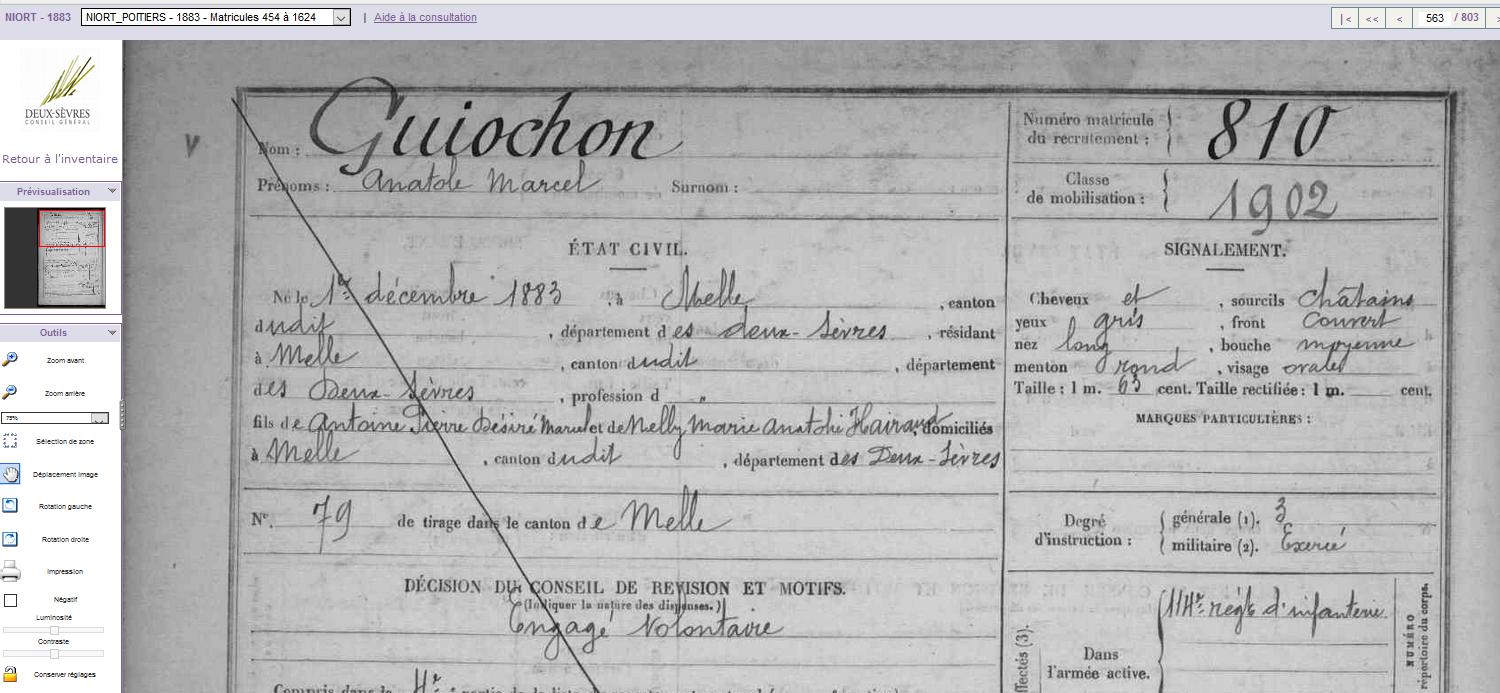 NIORT - 1883
NIORT_POITIERS - 1883 - Matricules 454 à 1624
| Aide à la consultation
|< << < 563 / 803 >
DEUX-SÈVRES
CONSEIL GÉNÉRAL
Retour à l'inventaire
Prévisualisation
Outils
Zoom avant
Zoom arrière
75%
Sélection de zone
Déplacement image
Rotation gauche
Rotation droite
Impression
Négatif
Luminosité
Contraste
Conserver réglages
V
Nom : Guiochon
Prénoms : Anatole Marcel Surnom :
ÉTAT CIVIL.
Né le 1er décembre 1883, à Melle, canton
dudit, département des deux-Sèvres, résidant
à Melle, canton dudit, département
des Deux-Sèvres, profession d "
fils de Antoine Pierre Désiré Marcel et de Nelly Marie domiciliés
à Melle, canton dudit, département des Deux-Sèvres
N°. 79 de tirage dans le canton de Melle
DÉCISION DU CONSEIL DE REVISION ET MOTIFS.
(Indiquer la nature des dispenses.)
Engagé Volontaire
Compris dans la
Numéro matricule
du recrutement : 810
Classe
de mobilisation : 1902
SIGNALEMENT.
Cheveux et, sourcils châtains
yeux gris, front couvert
nez long, bouche moyenne
menton rond, visage ovale
Taille : 1 m. 63 cent. Taille rectifiée : 1 m. cent.
MARQUES PARTICULIÈRES :
Degré
d'instruction :
générale (1). 3
militaire (2). Exercé
Dans
l'armée active.
114e régt d'infanterie.
NUMÉRO
répertoire du corps.